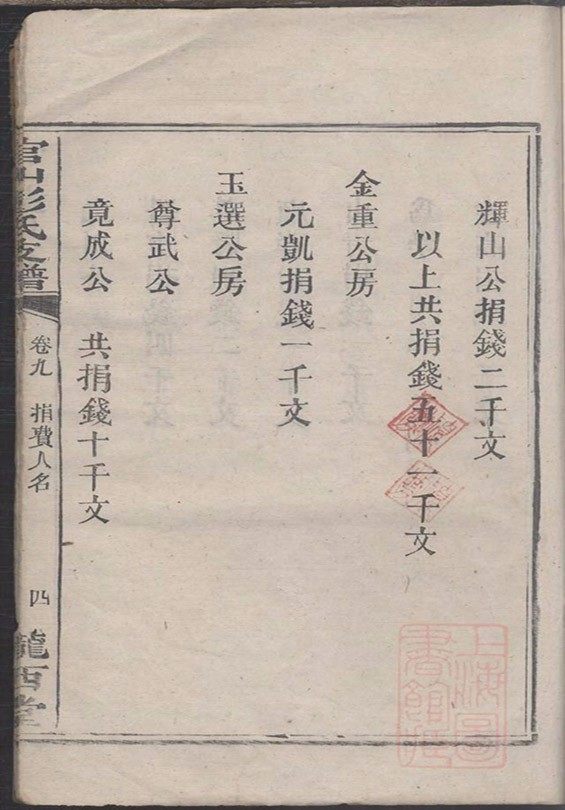 輝山公捐錢二千文
以上共捐錢五十一千文
金重公房
元凱捐錢一千文
玉選公房
尊武公
竟成公 共捐錢十千文
官山彭氏支譜 卷九 捐費人名 四 隴西堂
上海圖書館藏